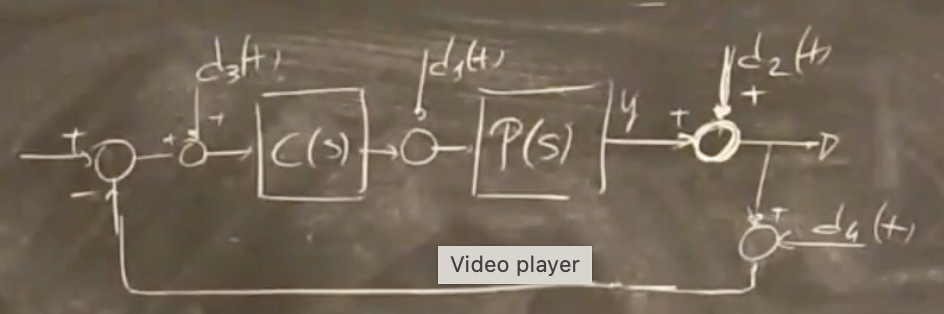 d₃(t) d₁(t) d₂(t)
+ + + C(s) P(s) y + +
-
+ d₄(t)
Video player